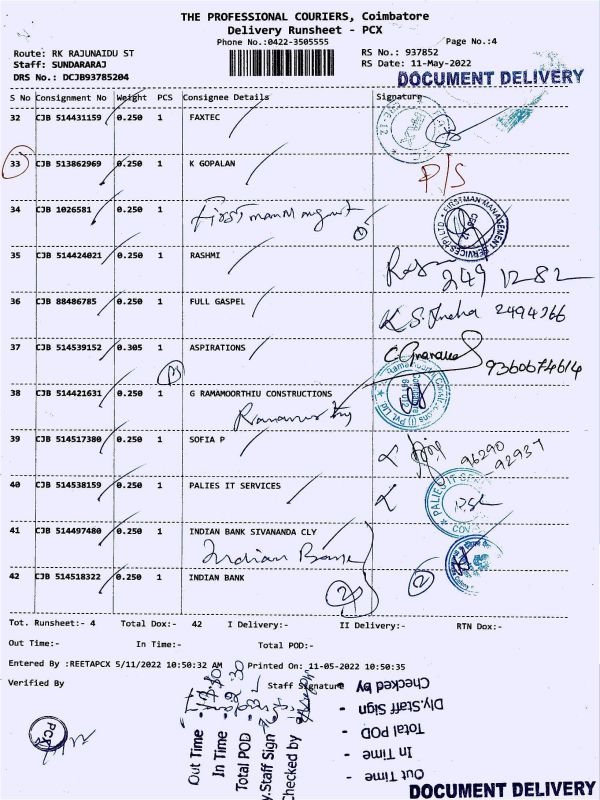 THE PROFESSIONAL COURIERS, Coimbatore
Delivery Runsheet - PCX
Phone No.:0422-3505555
Page No.:4
Route: RK RAJUNAIDU ST
RS No.: 937852
Staff: SUNDARARAJ
RS Date: 11-May-2022
DRS No.: DCJB93785204
DOCUMENT DELIVERY
S No Consignment No Weight PCS Consignee Details Signature
32 CJB 514431159 0.250 1 FAXTEC
33 CJB 513862969 0.250 1 K GOPALAN P/S
34 CJB 1026581 0.250 1 First man Mangment
2
FIRSTMAN MANAGEMENT SERVICES (P) LTD.
35 CJB 514424021 0.250 1 RASHMI
249 1282
36 CJB 88486785 0.250 1 FULL GASPEL K S. Indha 2494266
37 CJB 514539152 0.305 1 ASPIRATIONS
9360674614
38 CJB 514421631 0.250 1 G RAMAMOORTHIU CONSTRUCTIONS
39 CJB 514517380 0.250 1 SOFIA P
96290
92937
40 CJB 514538159 0.250 1 PALIES IT SERVICES
41 CJB 514497480 0.250 1 INDIAN BANK SIVANANDA CLY
Indian Bank
42 CJB 514518322 0.250 1 INDIAN BANK
2 2
Tot. Runsheet:- 4 Total Dox:- 42 I Delivery:- II Delivery:- RTN Dox:-
Out Time:- In Time:- Total POD:-
Entered By :REETAPCX 5/11/2022 10:50:32 AM Printed On: 11-05-2022 10:50:35
Verified By Staff Signature
PCX
Out Time :-
In Time :-
Total POD :-
y.Staff Sign
Checked by
Checked by -
Dly.Staff Sign -
Total POD -
In Time -
Out Time -
DOCUMENT DELIVERY